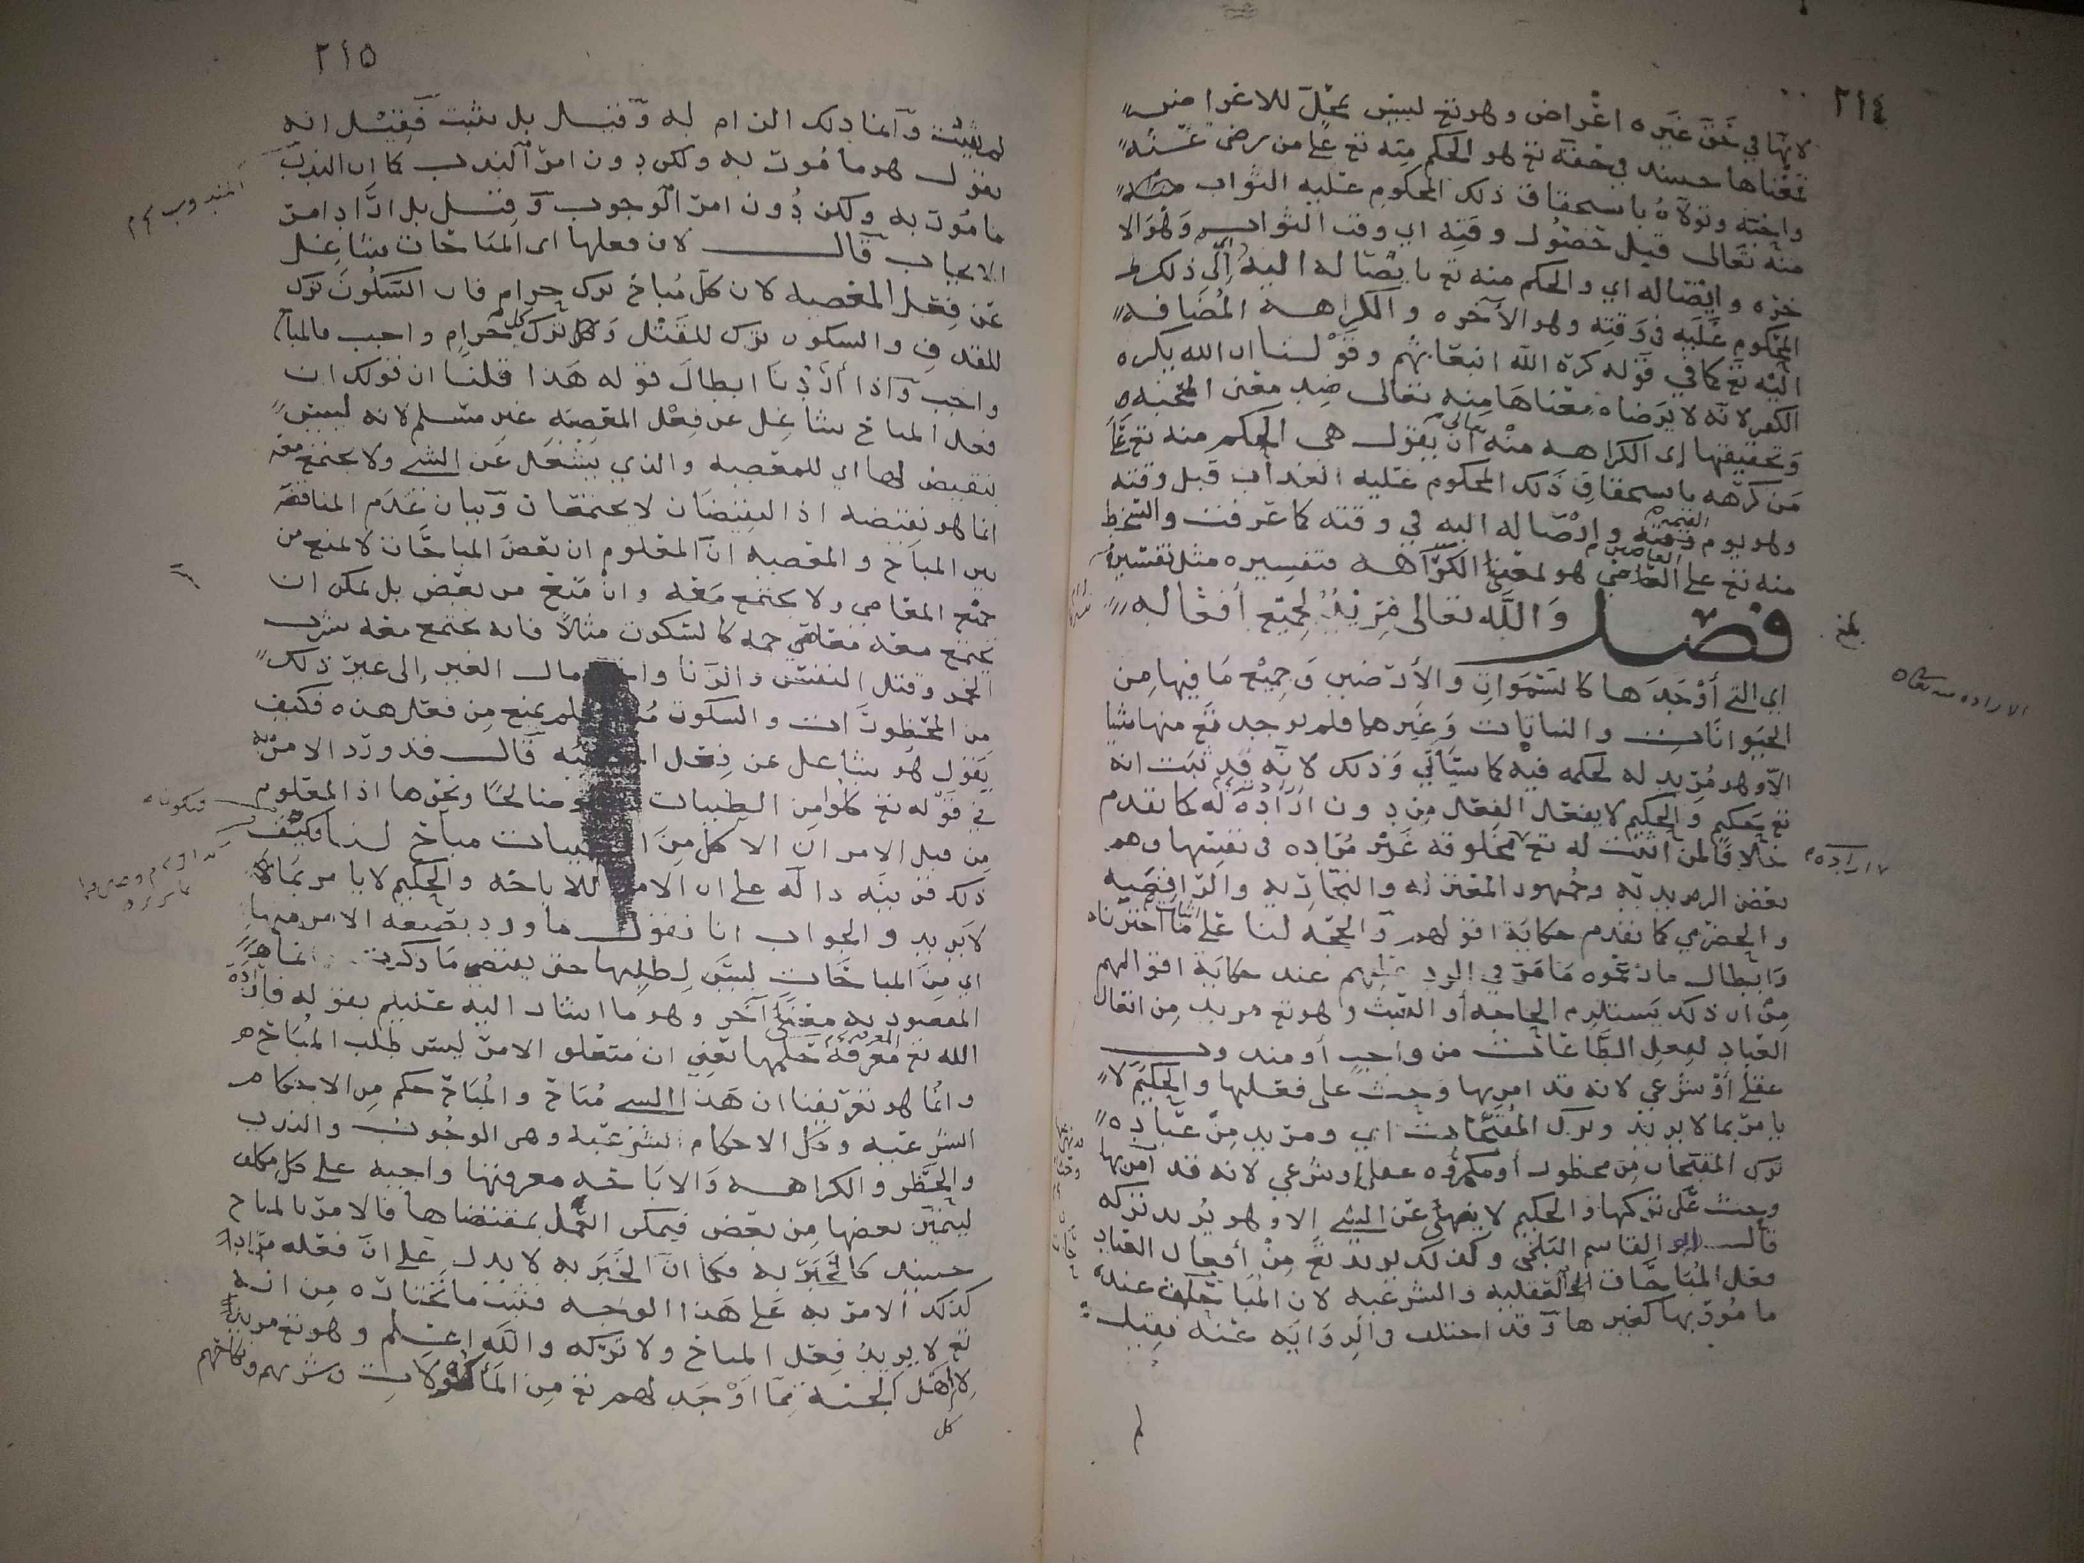 ٢١٤
لانها في حق غيره اغراض وهو تع ليس بمحل للاغراض
فمعناها حينئد في حقه تع هو الحكم منه تع على من رضي عنه
واحبه وتولاه باستحقاق ذلك المحكوم عليه الثواب
منه تعالى قبل حصول وقته اي وقت الثواب وهو الا
خره وايصاله اي والحكم منه تع بايصاله اليه الى ذلك
المحكوم عليه في وقته وهو الآخره والكراهه المضافه
اليه تع كما في قوله كره الله انبعاثهم وقولنا ان الله يكره
الكفر لانه لا يرضاه معناها منه تعالى ضد معنى المحبه
وتحقيقها اى الكراهه منه تعالى ان يقول هي الحكم منه تع على
من كرهه باستحقاق ذلك المحكوم عليه العذاب قبل وقته
وهو يوم القيمه وايصاله اليه في وقته كما عرفت والسخط
منه تع على العاصي هو لمعنى الكراهه فتفسيره مثل تفسيره
فصل والله تعالى مريد لجميع أفعاله
اي التي أوجدها كالسموات والأرضين وجميع ما فيها من
الحيوانات والنباتات وغيرها فلم يوجد تع منها شيا
الا وهو مريد له لحكمه فيه كما سيأتي وذلك لانه قد ثبت انه
تع حكيم والحكيم لا يفعل الفعل من دون ارادة له كما تقدم
خلافا لمن اثبت له تع مخلوقه غير مراده في نفسها وهم
بعض الزيديه وجمهور المعتزله والنجاريه والرافضيه
والحضرمي كما تقدم حكاية اقوالهم والحجه لنا على اثبات ما اخترناه
وابطال ما ادعوه ما مر في الرد عليهم عند حكاية اقوالهم
من ان ذلك يستلزم الحاجه أو العبث وهو تع مريد من افعال
العباد لفعل الطاعات من واجب أو مندوب
عقلي أو شرعي لانه قد امر بها وحث على فعلها والحكيم لا
يامر بما لا يريد وترك المقبحات اي ومريد من عباده
ترك المقبحات من محظور أو مكروه عقلي وشرعي لانه قد أمر بها
وحث على تركها والحكيم لا ينهى عن الشي إلا وهو يريد تركه
قال ابو القاسم البلخي وكذلك يريد تع من أفعال العباد
فعل المباحات العقليه والشرعيه لان المباحات عنده
مامور بها كغيرها وقد اختلف في الروايه عنه فقيل
بلغ
الاراده منه تعالى
ارادة
لم
٢١٥
لم يثبت وانما ذلك الزام له وقيل بل يثبت فقيل انه
يقول هو مامور به ولكن دون امر الندب كما ان الندب
مامور به ولكن دون امر الوجوب وقيل بل اراد امر
الايجاب قال لان فعلها اى المباحات شاغل
عن فعل المعصيه لان كل مباح ترك حرام فان السكون ترك
للقذف والسكون ترك للقتل وكل ترك حرام واجب فالمباح
واجب واذا أردنا ابطال قوله هذا قلنا ان قولك ان
فعل المباح شاغل عن فعل المعصيه غير مسلم لانه ليس
بنقيض لها اي للمعصيه والذي يشغل عن الشي ولا يجتمع معه
انما هو نقيضه اذ النقيضان لا يجتمعان وبيان عدم المناقضه
بين المباح والمعصيه ان المعلوم ان بعض المباحات لا تمنع من
جميع المعاصي ولا يجتمع معه وان منع من بعض بل يمكن ان
يجتمع معه معاصي جمه كالسكون مثالا فانه يجتمع معه شرب
الخمر وقتل النفس والزنا مال الغير إلى غير ذلك
من المحظورات والسكون فلم يمنع من فعل هذه فكيف
يقول هو شاغل عن فعل قال قد ورد الامر به
في قوله تع كلوا من الطيبات صالحا ونحوها اذ المعلوم
من قبل الامر ان الاكل من الطيبات مباح لنا فكيف
ذلك قرينه داله على ان الامر للاباحه والحكيم لا يامر بما
لا يريد والجواب انا نقول ما ورد بصيغه الامر منها
اي من المباحات ليس لطلبها حتى يقتضي ما ذكرت انما هو
المقصود به معنى آخر وهو ما اشار اليه عليلم بقوله فانما اراد
الله تع معرفة حكمها يعني ان متعلق الامر ليس طلب المباح
وانما هو تعريفنا ان هذا الشي مباح والمباح حكم من الاحكام
الشرعيه وكل الاحكام الشرعيه وهي الوجوب والندب
والحظر والكراهه والاباحه معرفتها واجبه على كل مكلف
ليتميز بعضها من بعض فيمكن العمل بمقتضاها فالامر بالمباح
حينئد كالخبر به فكما ان الخبر به لا يدل على ان فعله مراد
كذلك الامر به على هذا الوجه فثبت ما نختاره من انه
تع لا يريد فعل المباح ولا تركه والله اعلم وهو تع مريد
لاهل الجنه مما اوجد لهم تع من المأكولات وشربهم ونكاحهم
كل
المندوب
فيكون